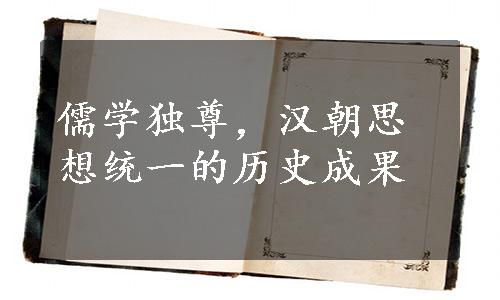 儒学独尊，汉朝思
想统一的历史成果